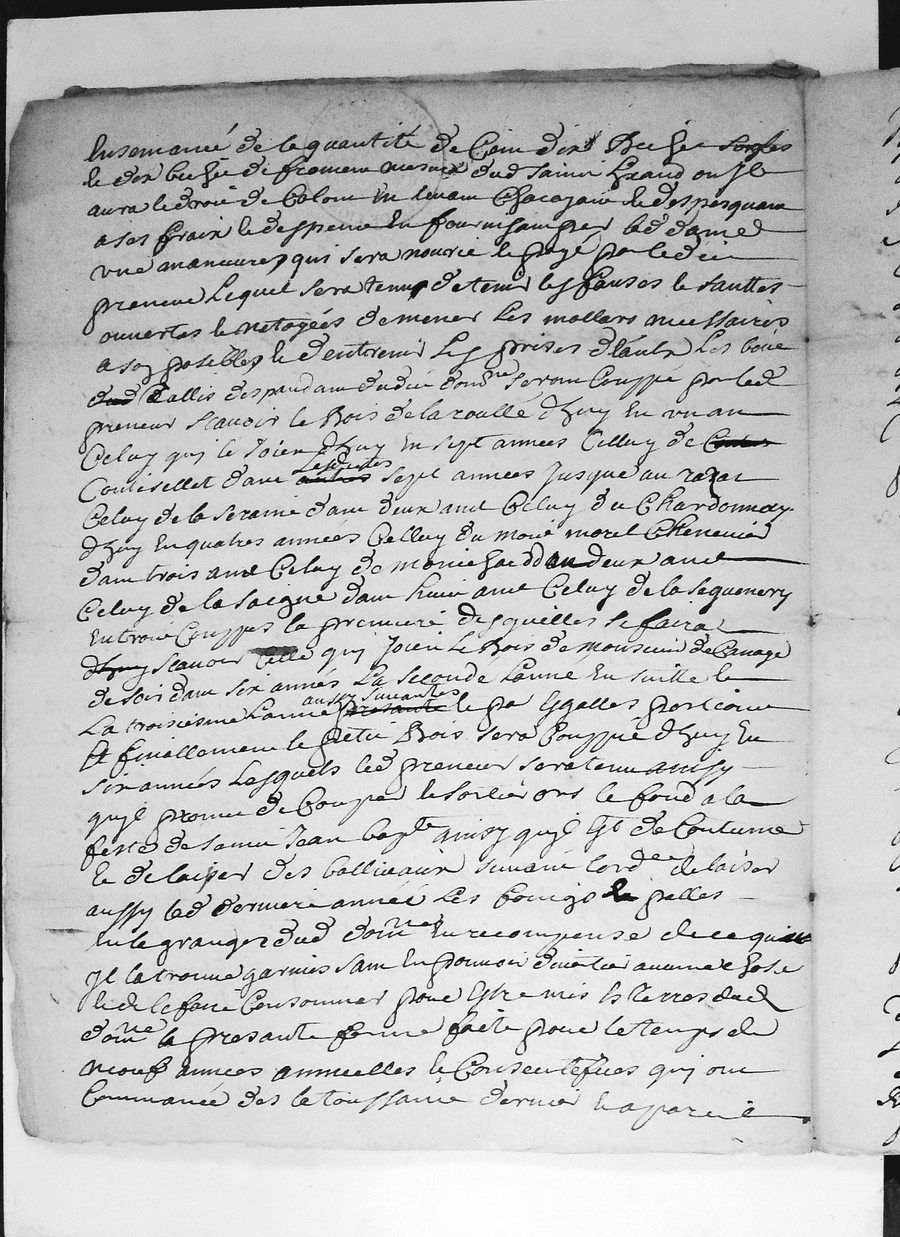 Ensemancé de la quantité de Cain dix Bechée Seigles
le dix bechée de froment mesure dud Sainct Grand ou Jl
aura le droit de Colom en levant Chacajain le despesquant
a ses frais le despence En fournissant par lad dame
vne maneuvre qui sera nourie le payé par ledit
preneur Lequel sera tenu de tenir les fausés le sauttes
ouvertes le netoyées de mener les mollers necessaires
a soy posibles le dentrenir les prises deaux Les bois
dud Tallis despendant dudit domne seront Couppé par led
preneur scauoir le Bois de la roullé dhuy En vn an
Celuy qui le Joien dhuy En sept années Celluy de
Contisellet dans Lesdites sept années Jusque au razat
Celuy de la Seraine dans deux ans Celuy du Chardonnay
dhuy En quatres années Celluy du moué morel Chenevier
dans trois ans Celuy de dans deux ans
Celuy de la saigne dans huit ans Celuy de la sequenery
En troie Couppes la premiere desquelles se faira
dhuy scauoir Celle qui Joien le Bois de monsieur de Canage
de soir dans six annés La seconde Lanné En suitte le
La troisiesme Lanné aussy suivantes presante le pa Egalles portions
Et finallement le petit Bois sera Couppé dhuy En
six années Lesquels led preneur sera tenu ainsy
quil promet de Couper le sortir ors le fond a la
feste de Sainct Jean bapte ainsy quil Est de Coutume
le de laisser des ballieaux suivant lordce de laisser
aussy lad derniere année Les foings le pailles
En le granger dud domne En recompense de ce qui
Jl la trouvé garnis sans En pouvoir divertir aucune chose
le de le faire Consommer pour Estre mis Es terres dud
domne la presante ferme faite pour le temps de
neouf annees annuelles le Consecutefues qui ont
Commancée des la toussaint dernier En a parcé